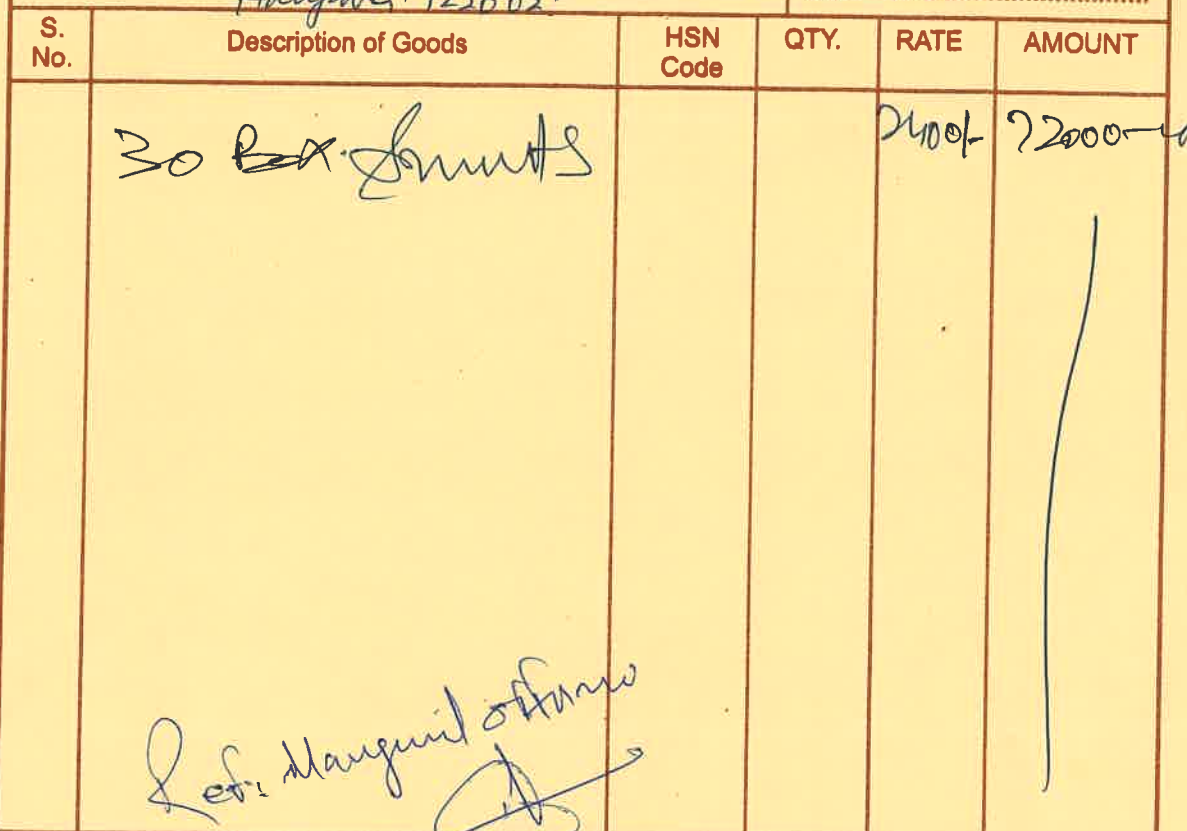 122002
S. No. Description of Goods HSN Code QTY. RATE AMOUNT
30 Box 2400/- 72000-00
Ref: